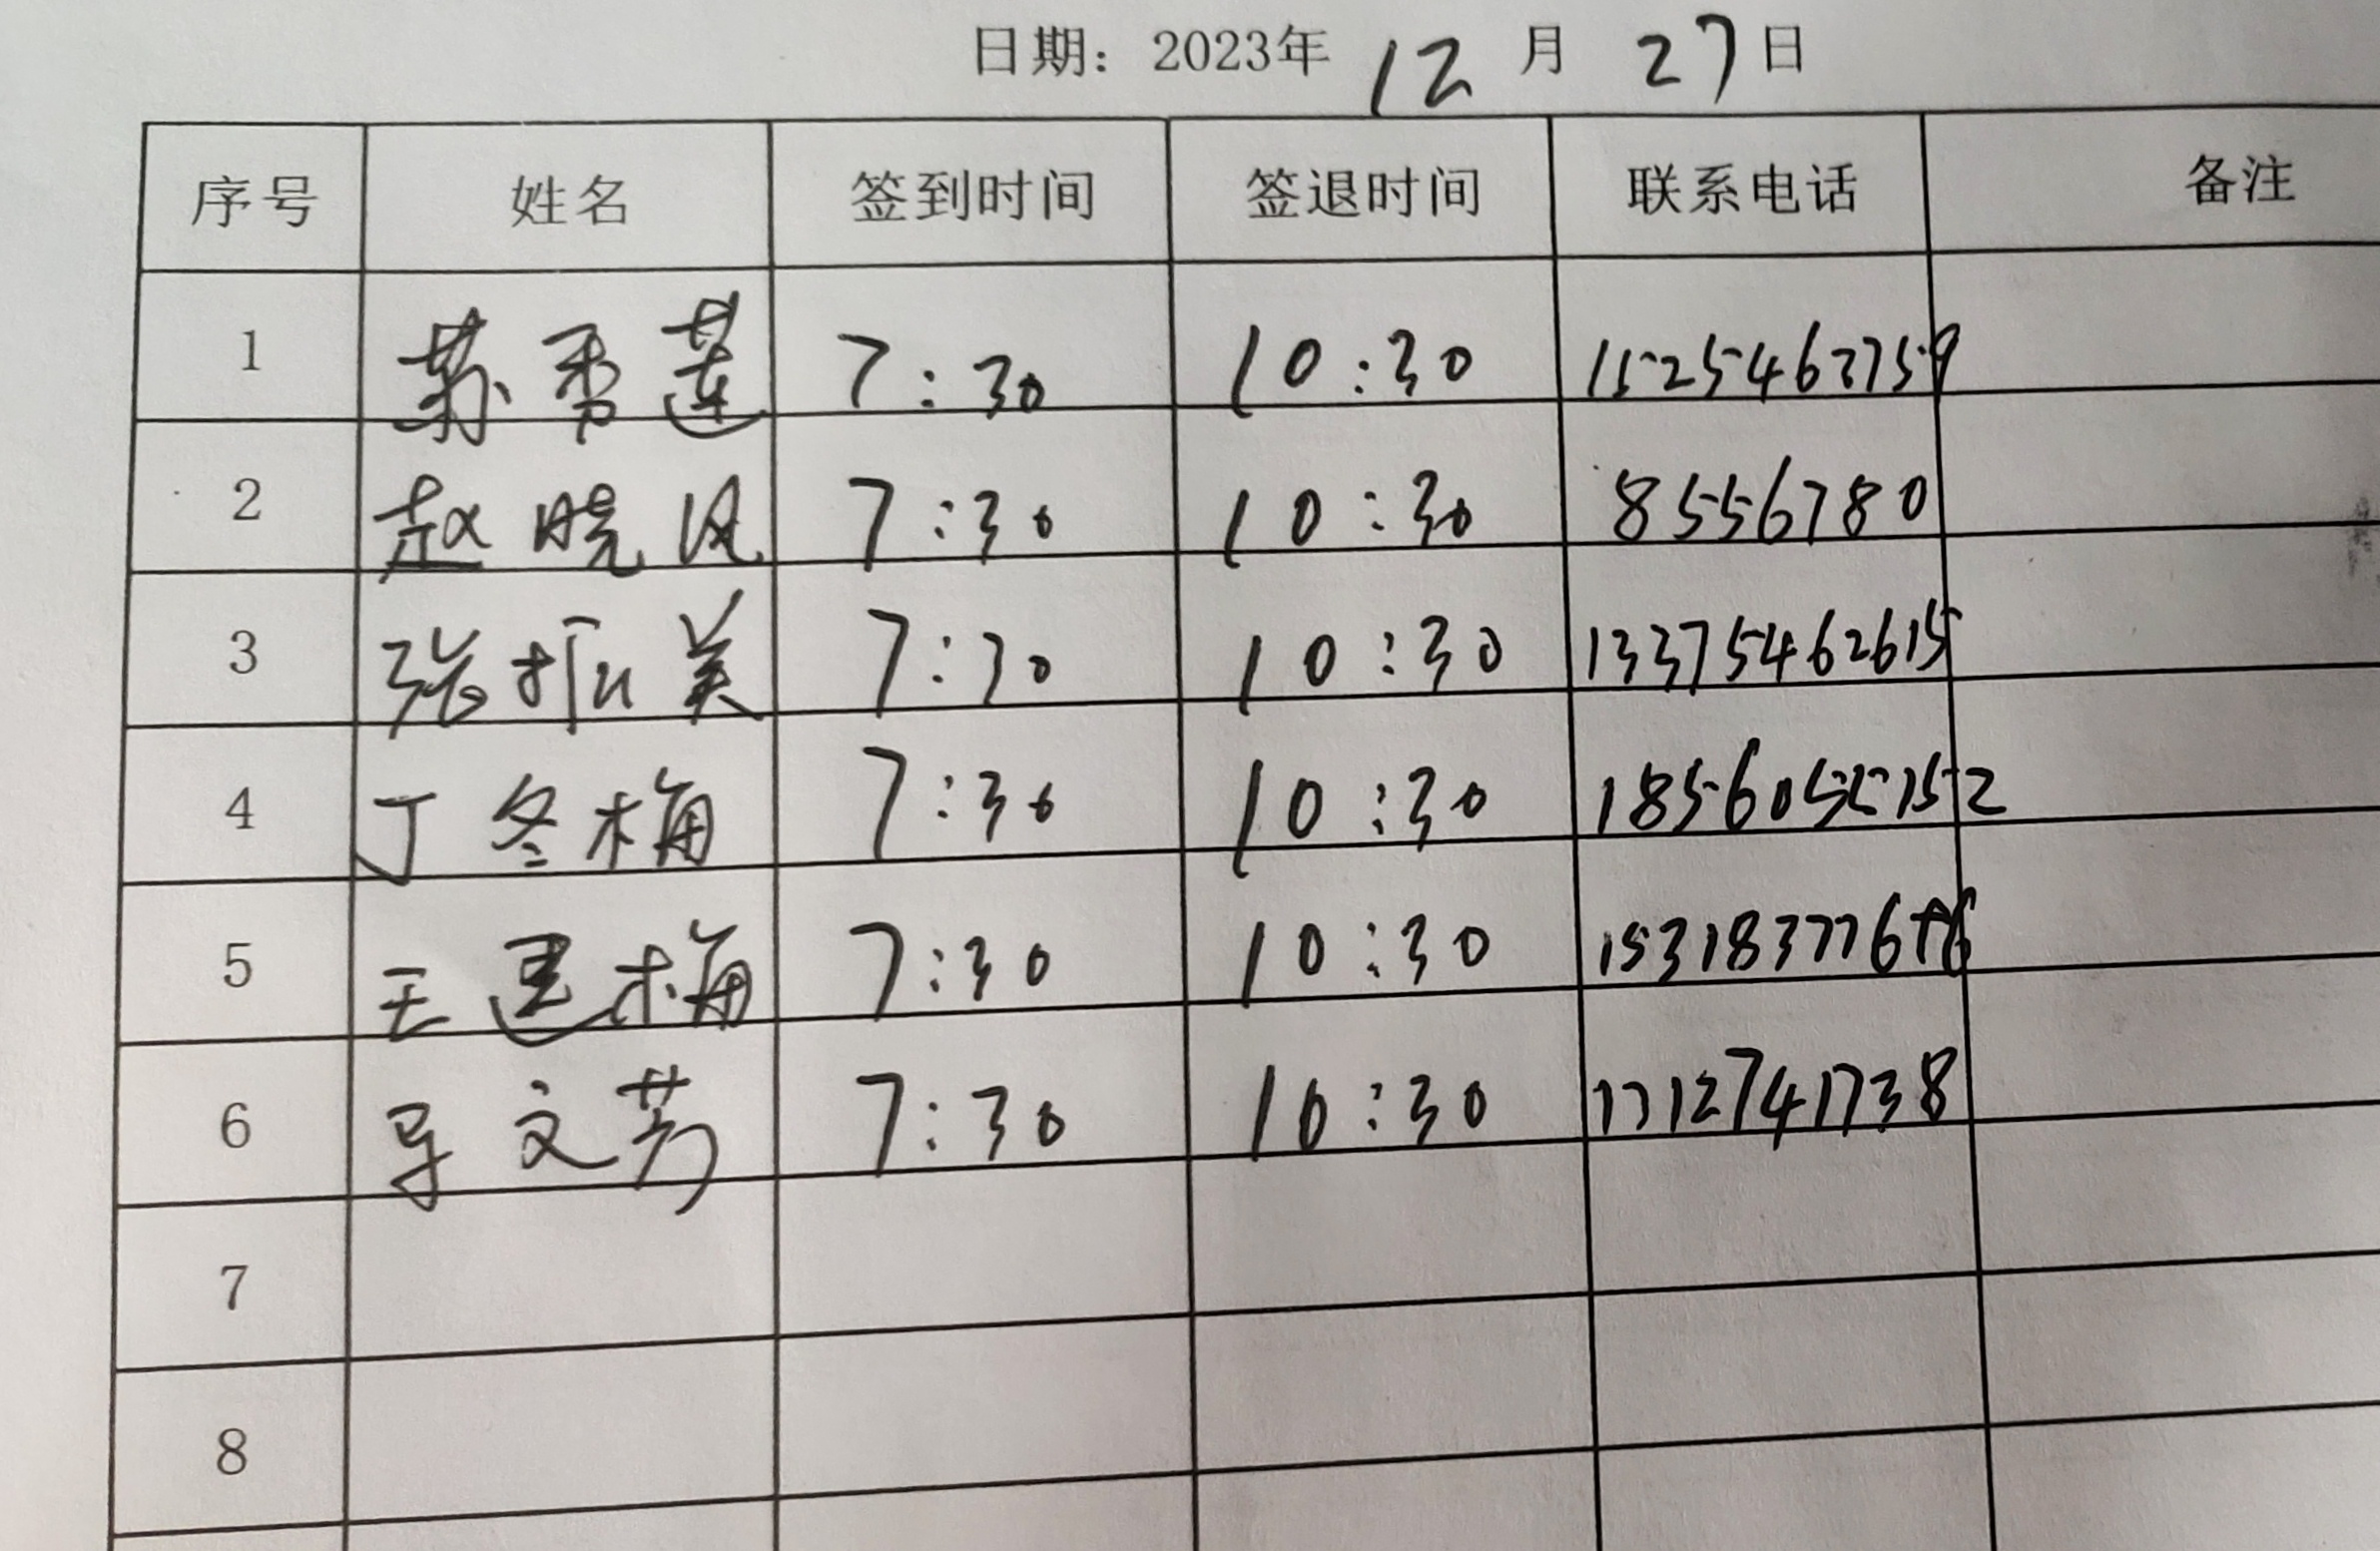 日期：2023年 12 月 27 日
序号 姓名 签到时间 签退时间 联系电话 备注
1 苏秀莲 7:30 10:30 15254637759
2 赵晓风 7:30 10:30 8556780
3 张振美 7:30 10:30 13375462615
4 丁冬梅 7:30 10:30 18560552152
5 王建梅 7:30 10:30
6 文芳 7:30 10:30
7
8